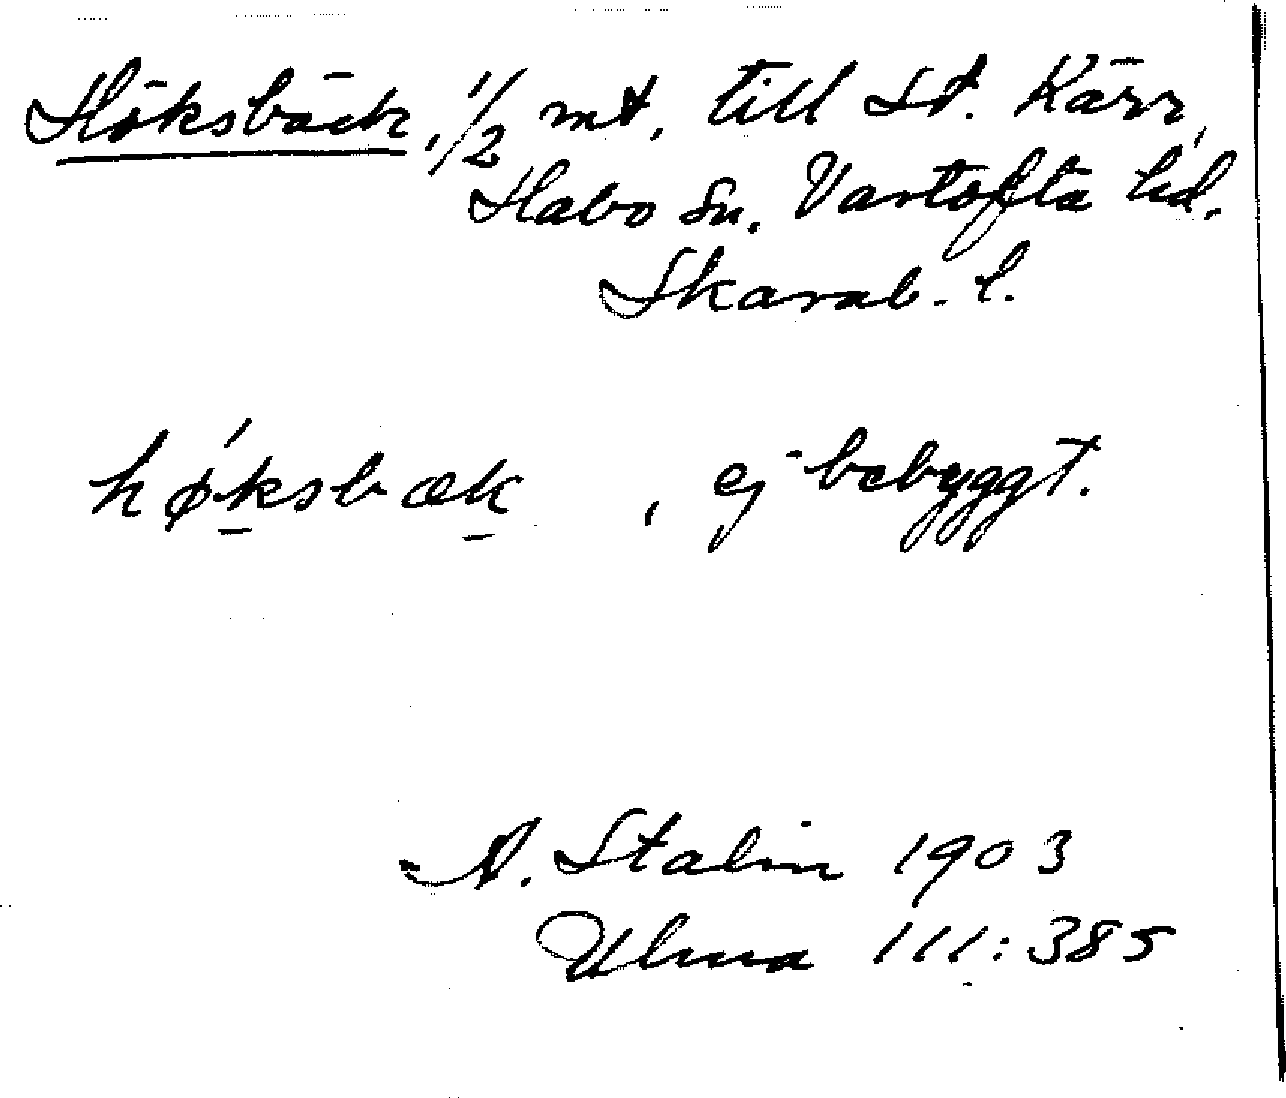 Höksbäck, 1/2 mt. till St. Kärr,
Habo sn. Vartofta hd.
Skarab. l.
hǿksbæk , ej bebyggt.
A. Stalin 1903
Ulma 111:385